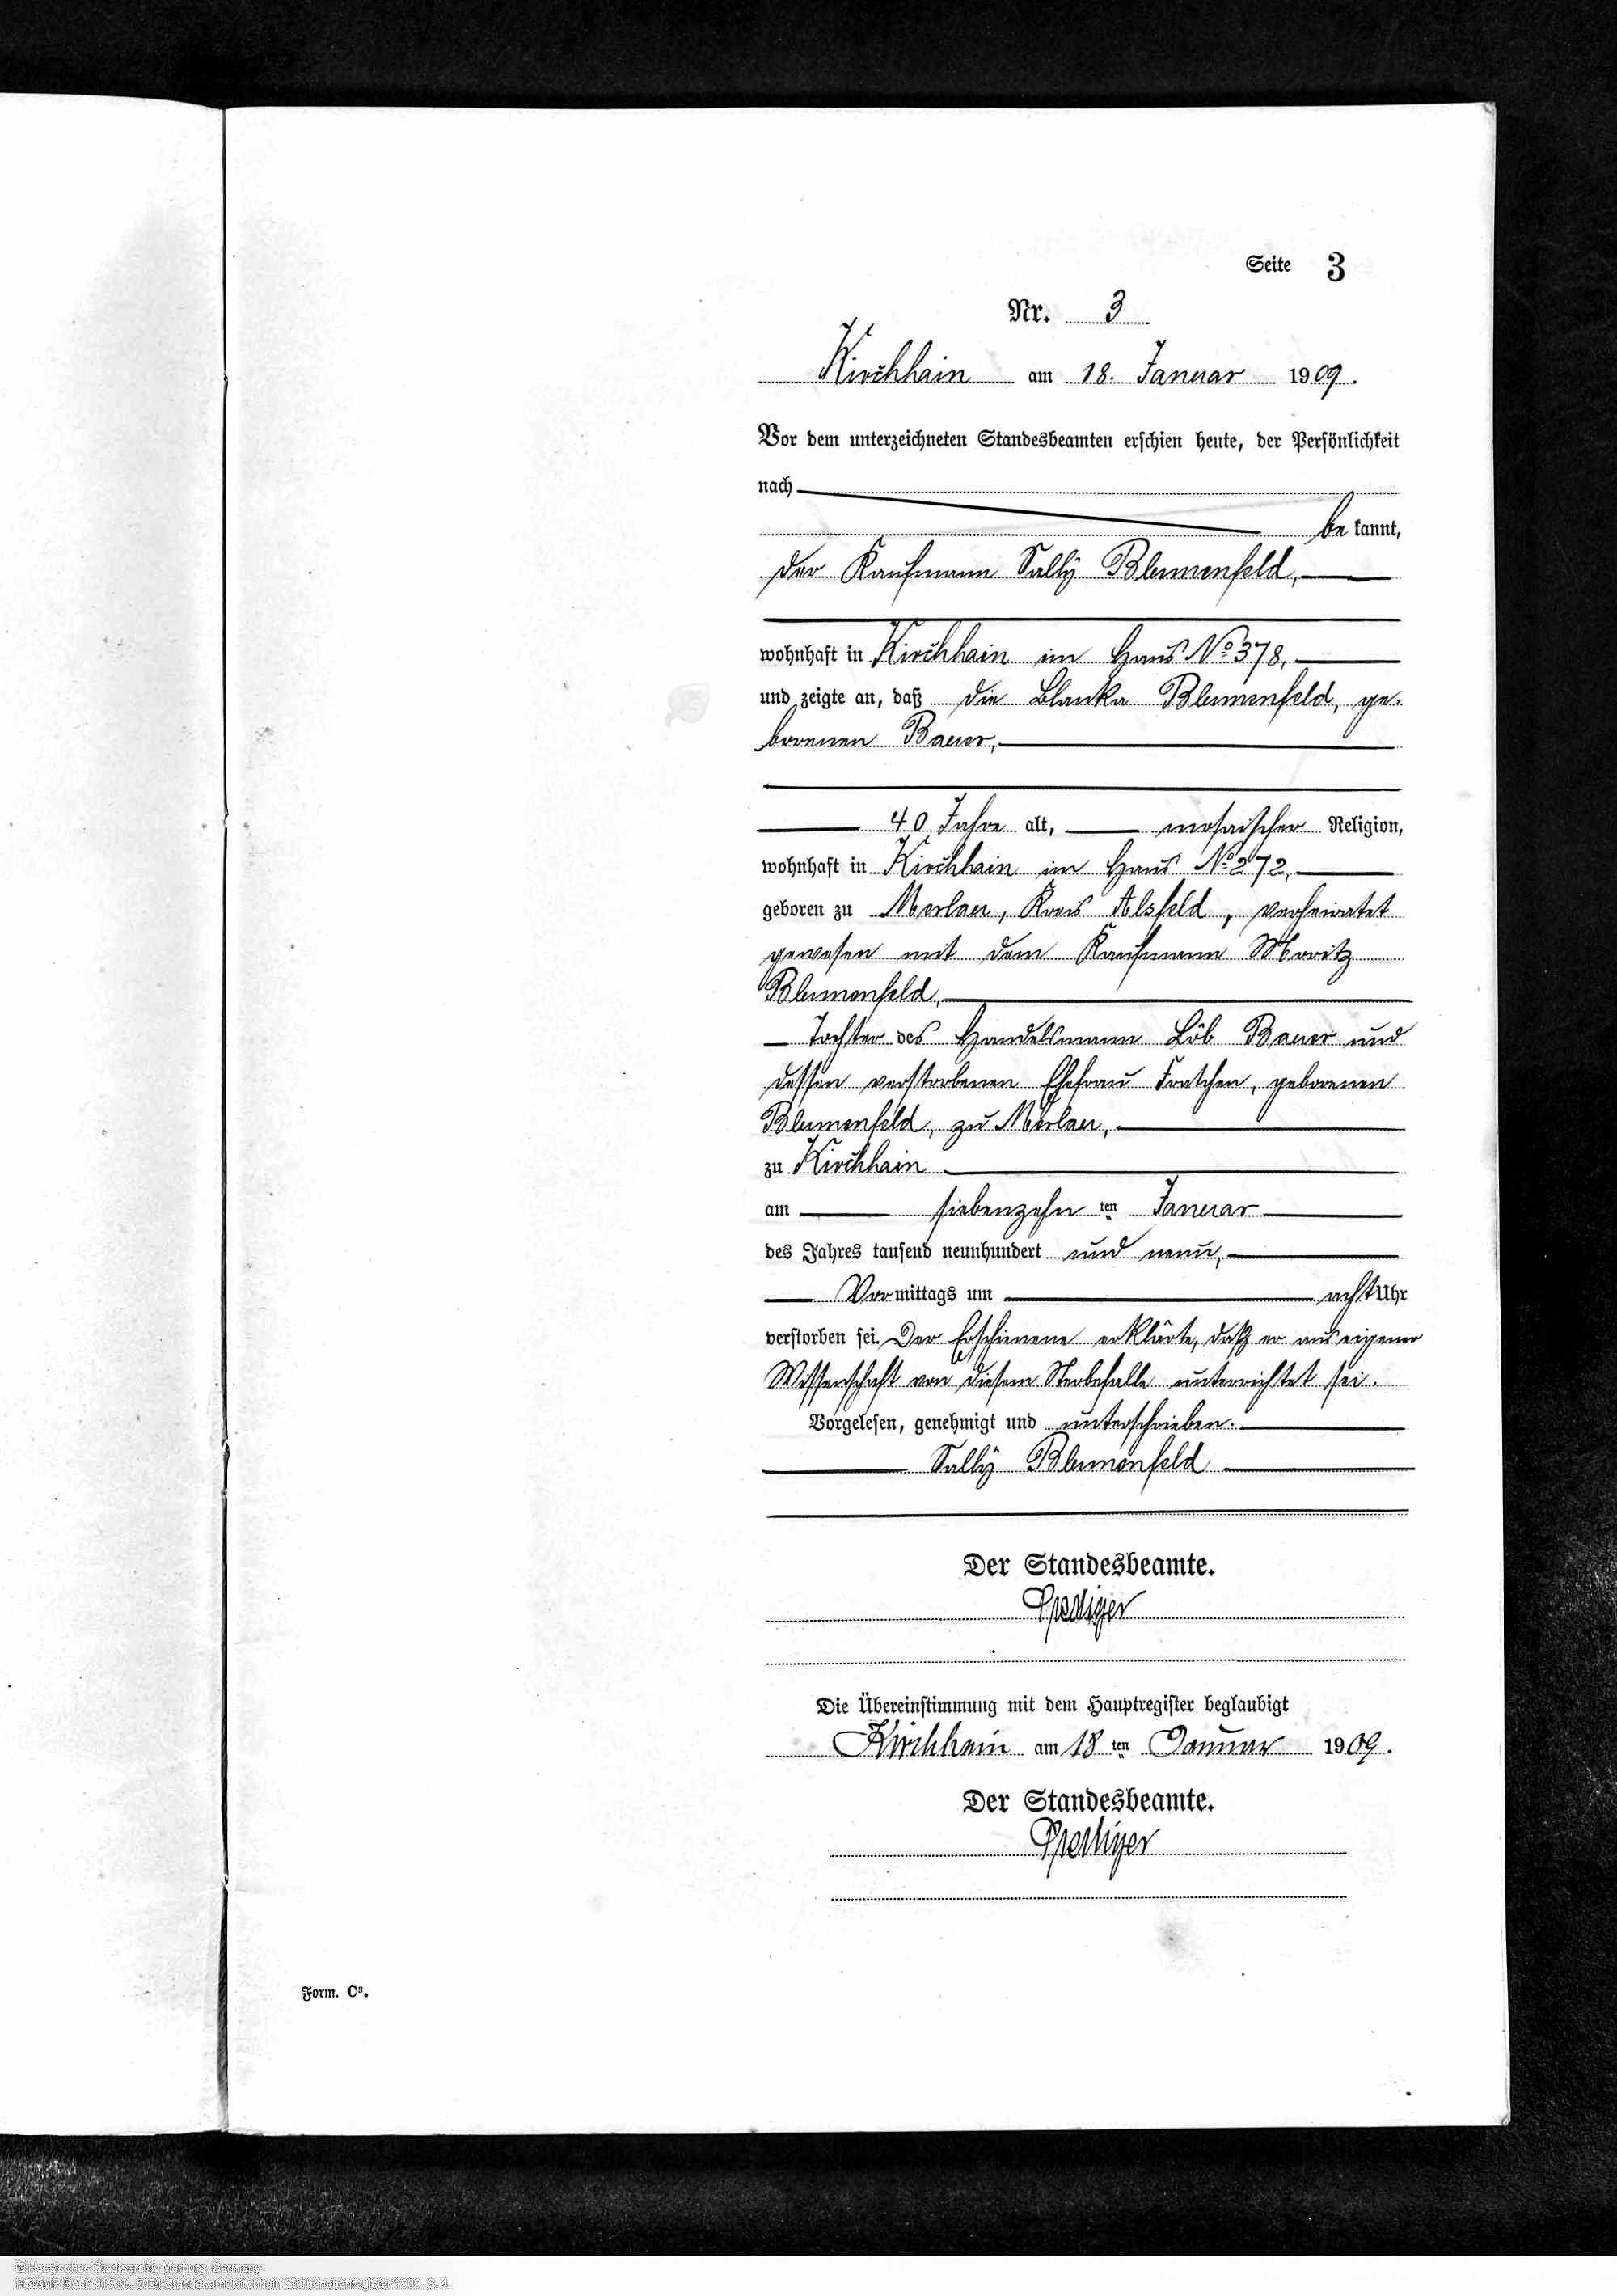 Seite 3
Nr. 3
Kirchhain am 18. Januar 1909.
Vor dem unterzeichneten Standesbeamten erschien heute, der Persönlichkeit
nach
be kannt,
der Kaufmann Sally Blumenfeld,
wohnhaft in Kirchhain im Haus No 378,
und zeigte an, daß die Blanka Blumenfeld, ge-
borenen Bauer,
40 Jahre alt, mosaischer Religion,
wohnhaft in Kirchhain im Haus No 272,
geboren zu Merlau, Kreis Alsfeld, verheiratet
gewesen mit dem Kaufmann Moritz
Blumenfeld,
Tochter des Handelsmann Löb Bauer und
dessen verstorbenen Ehefrau geborenen
Blumenfeld, zu Merlau,
zu Kirchhain
am siebenzehn ten Januar
des Jahres tausend neunhundert und neun,
Vormittags um acht Uhr
verstorben sei. Der Erschienene erklärte, daß er aus eigener
Wissenschaft von diesem Sterbefalle unterrichtet sei.
Vorgelesen, genehmigt und unterschrieben.
Sally Blumenfeld
Der Standesbeamte.
Die Übereinstimmung mit dem Hauptregister beglaubigt
Kirchhain am 18 ten Januar 1909.
Der Standesbeamte.
Form. C³.
© Hessisches Staatsarchiv Marburg, Germany